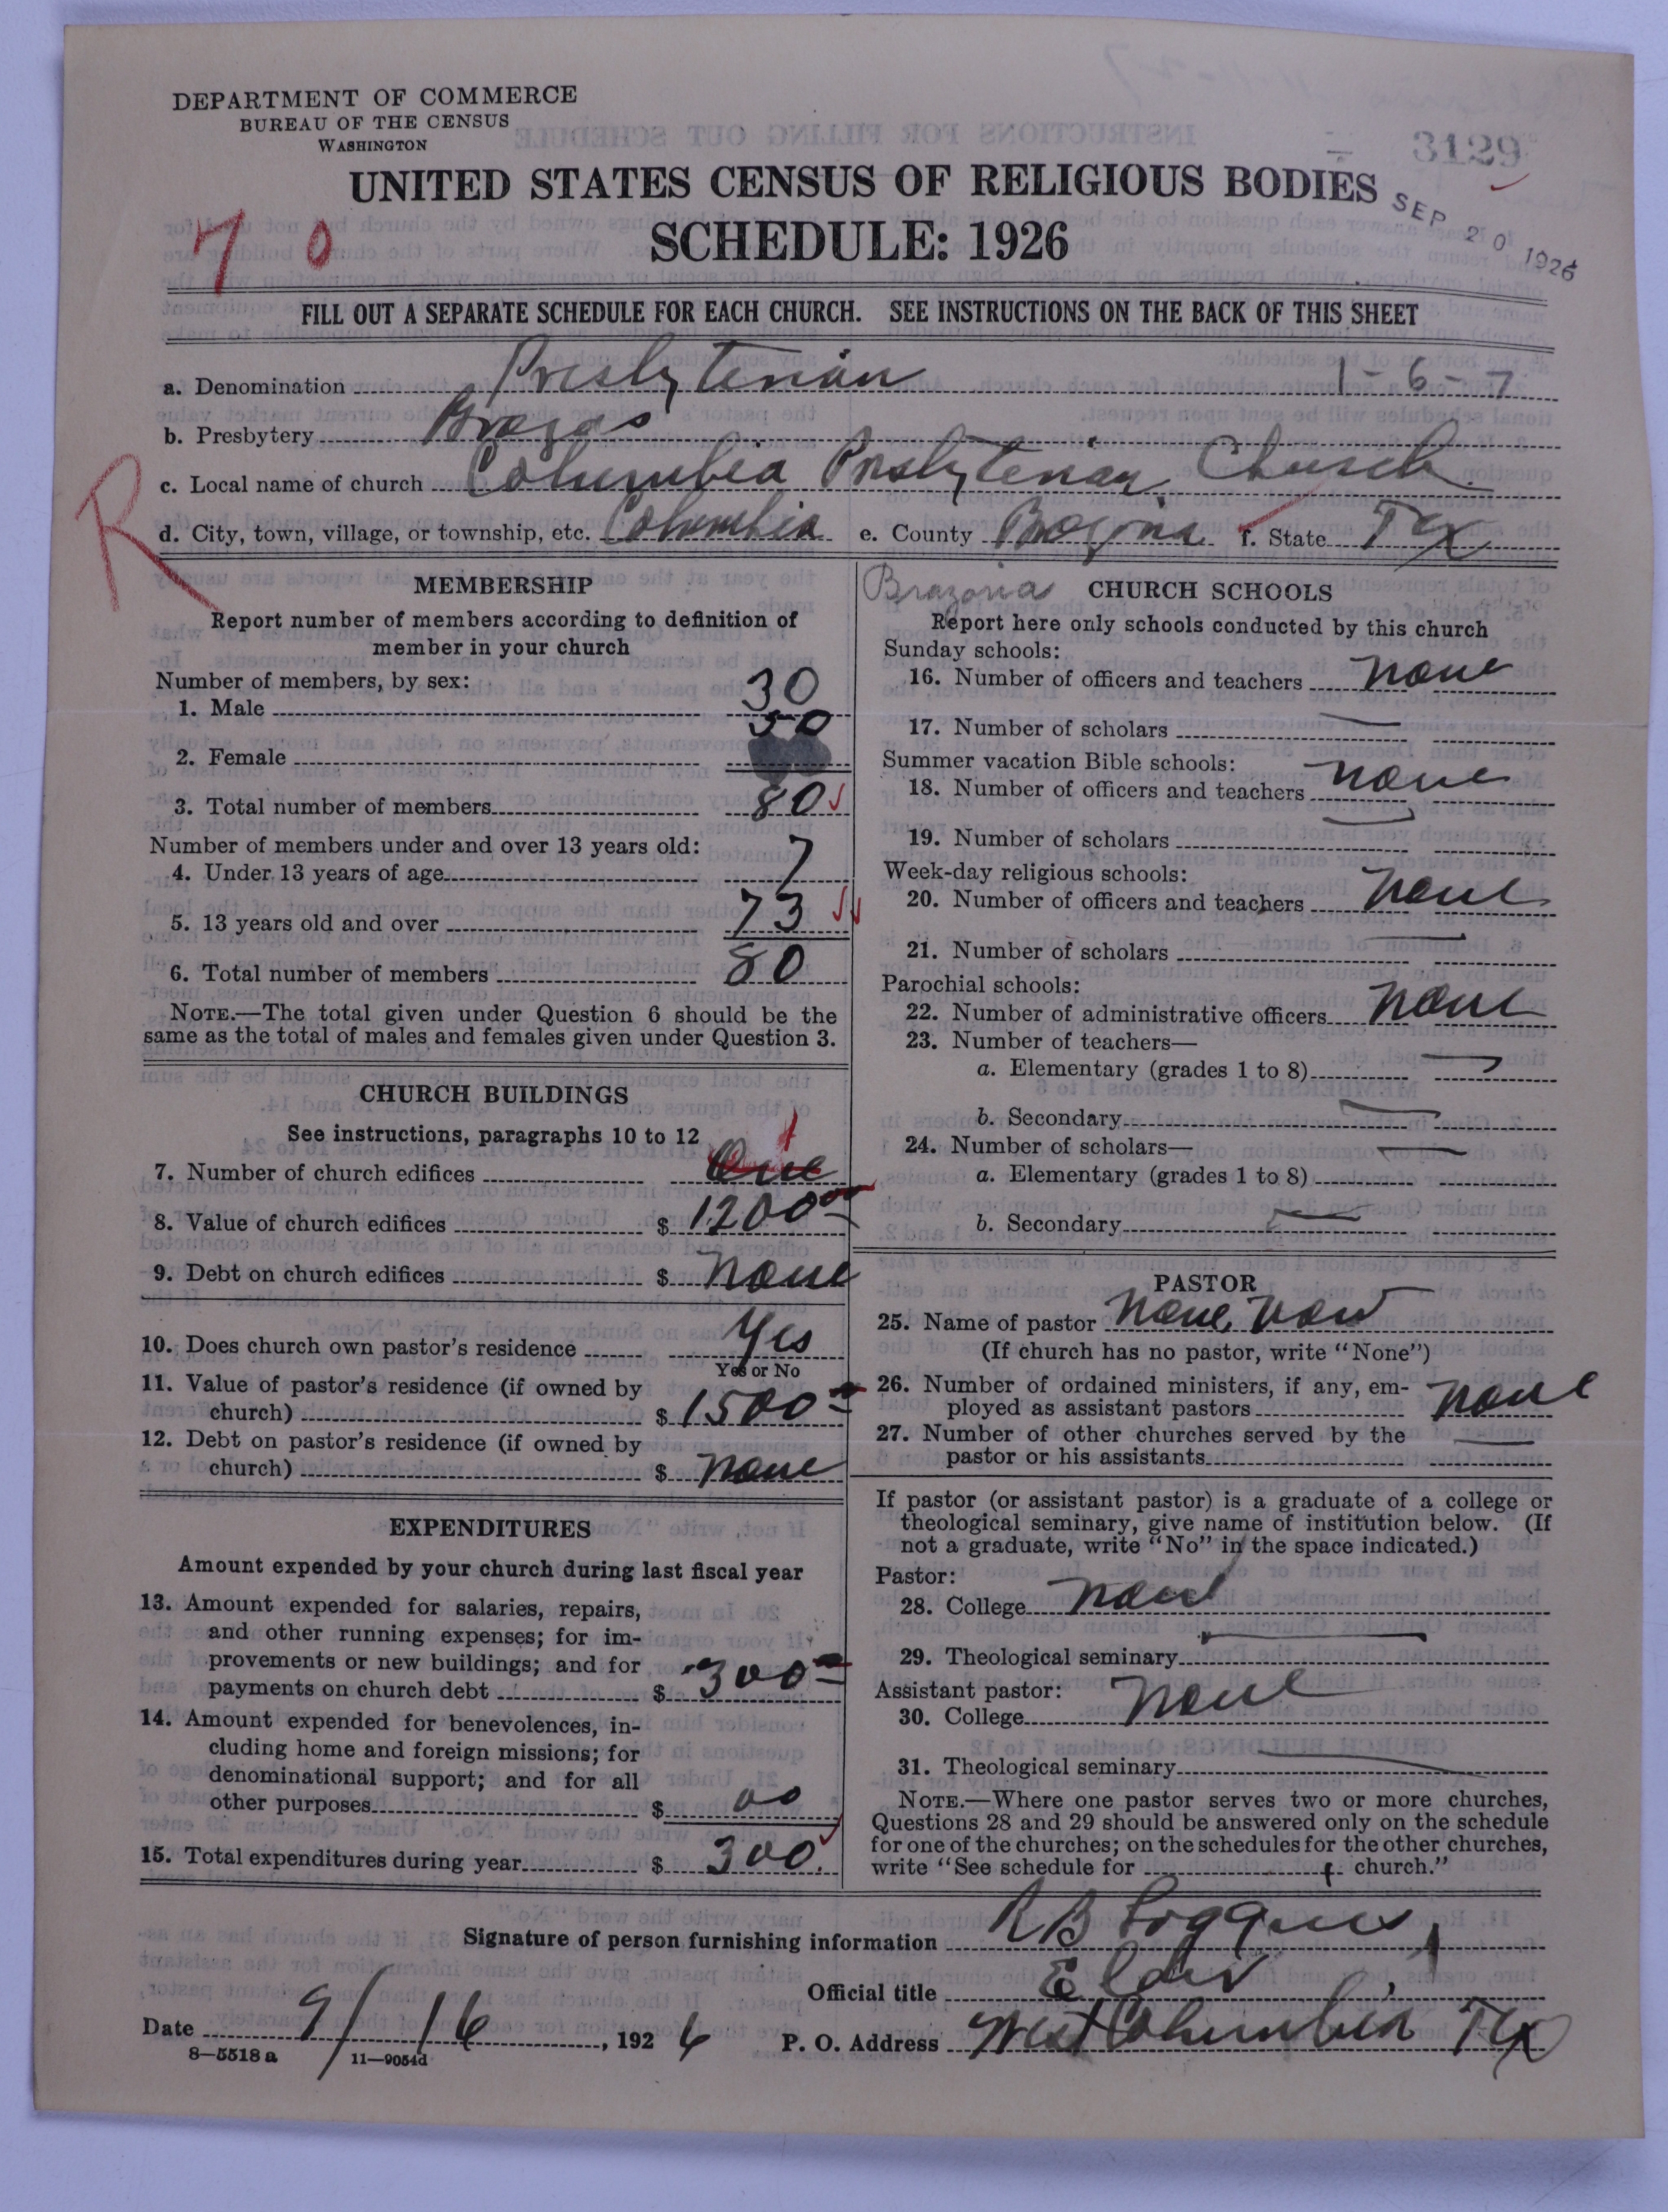 DEPARTMENT OF COMMERCE
BUREAU OF THE CENSUS
WASHINGTON
3129
UNITED STATES CENSUS OF RELIGIOUS BODIES
SCHEDULE: 1926
SEP 20 1926
70
FILL OUT A SEPARATE SCHEDULE FOR EACH CHURCH. SEE INSTRUCTIONS ON THE BACK OF THIS SHEET
a. Denomination Presbyterian 1-6-7
b. Presbytery Brazos
R
c. Local name of church Columbia Presbyterian Church
d. City, town, village, or township, etc. Columbia e. County f. State Tex
MEMBERSHIP
Report number of members according to definition of
member in your church
Number of members, by sex:
1. Male 30
2. Female 50
3. Total number of members 80
Number of members under and over 13 years old:
4. Under 13 years of age 7
5. 13 years old and over 73
6. Total number of members 80
NOTE.—The total given under Question 6 should be the
same as the total of males and females given under Question 3.
CHURCH BUILDINGS
See instructions, paragraphs 10 to 12
1
7. Number of church edifices One
8. Value of church edifices $ 1200 00
9. Debt on church edifices $ none
10. Does church own pastor's residence Yes
Yes or No
11. Value of pastor's residence (if owned by
church) $ 1500
12. Debt on pastor's residence (if owned by
church) $ none
EXPENDITURES
Amount expended by your church during last fiscal year
13. Amount expended for salaries, repairs,
and other running expenses; for im-
provements or new buildings; and for
payments on church debt $ 300
14. Amount expended for benevolences, in-
cluding home and foreign missions; for
denominational support; and for all
other purposes $ 00
15. Total expenditures during year $ 300.
Brazoria CHURCH SCHOOLS
Report here only schools conducted by this church
Sunday schools:
16. Number of officers and teachers none
17. Number of scholars
Summer vacation Bible schools:
18. Number of officers and teachers none
19. Number of scholars
Week-day religious schools:
20. Number of officers and teachers none
21. Number of scholars
Parochial schools:
22. Number of administrative officers none
23. Number of teachers—
a. Elementary (grades 1 to 8)
b. Secondary
24. Number of scholars—
a. Elementary (grades 1 to 8)
b. Secondary
PASTOR
25. Name of pastor None now
(If church has no pastor, write "None")
26. Number of ordained ministers, if any, em-
ployed as assistant pastors none
27. Number of other churches served by the
pastor or his assistants
If pastor (or assistant pastor) is a graduate of a college or
theological seminary, give name of institution below. (If
not a graduate, write "No" in the space indicated.)
Pastor:
28. College none
29. Theological seminary
Assistant pastor:
30. College none
31. Theological seminary
NOTE.—Where one pastor serves two or more churches,
Questions 28 and 29 should be answered only on the schedule
for one of the churches; on the schedules for the other churches,
write "See schedule for church."
Signature of person furnishing information R B Loggins
Official title Elder
Date 9/16, 1926 P. O. Address West Columbia Tex
8—5518 a 11—9054d